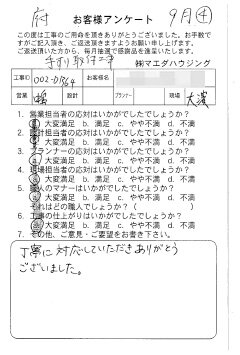 府 お客様アンケート 9月
この度は工事のご用命を頂きありがとうございます。お手数で
すがご記入頂き、ご返送頂きますようお願い申し上げます。
ご返送頂いた方から、毎月抽選で感謝品を進呈いたします。
手すり取付工事 ㈱マエダハウジング
工事番号 002-0764 お客様名
営業 設計 プランナー 現場 大濱
1. 営業担当者の応対はいかがでしたでしょうか?
a. 大変満足 b. 満足 c. やや不満 d. 不満
2. 設計担当者の応対はいかがでしたでしょうか?
a. 大変満足 b. 満足 c. やや不満 d. 不満
3. プランナーの応対はいかがでしたでしょうか?
a. 大変満足 b. 満足 c. やや不満 d. 不満
4. 現場担当者の応対はいかがでしたでしょうか?
a. 大変満足 b. 満足 c. やや不満 d. 不満
5. 職人のマナーはいかがでしたでしょうか?
a. 大変満足 b. 満足 c. やや不満 d. 不満
それはどの職人でしょうか?( )
6. 工事の仕上がりはいかがでしたでしょうか?
a. 大変満足 b. 満足 c. やや不満 d. 不満
7. その他、ご意見・ご要望をお書き下さい。
丁寧に対応していただきありがとう
ございました。